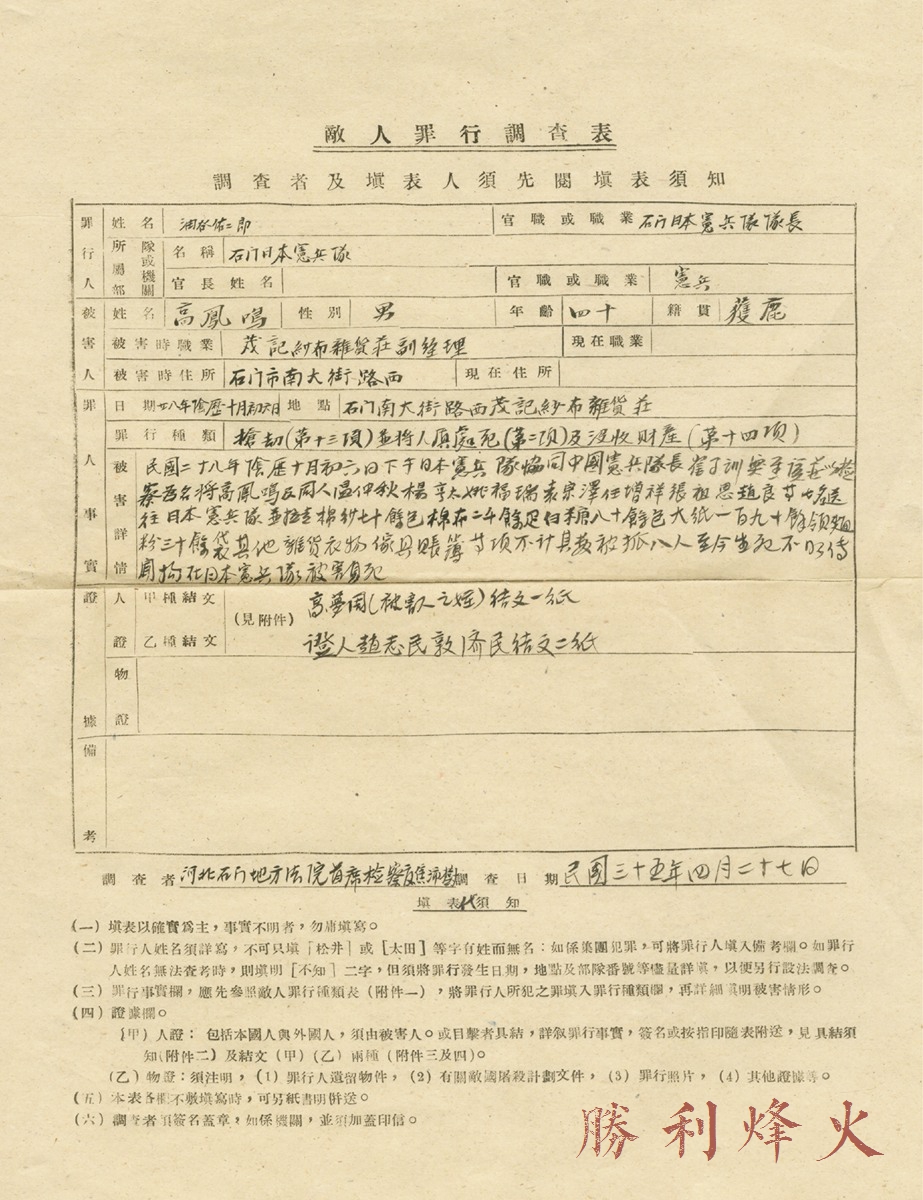 敵人罪行調查表
調查者及填表人須先閱填表須知
罪行人 姓名 油谷佑二郎 官職或職業 石门日本憲兵隊隊長
所屬部隊或機關 名稱 石门日本憲兵隊
官長姓名 官職或職業 憲兵
被害人 姓名 高鳳鳴 性別 男 年齡 四十 籍貫 獲鹿
被害時職業 茂記紗布雜貨莊副経理 現在職業
被害時住所 石门市南大街路西 現在住所
罪人事實 日期 廿八年陰歷十月初六日 地點 石门南大街路西茂記紗布雜貨莊
罪行種類 搶劫(第十三項)並將人質處死(第二項)及没收财產(第十四项)
被害詳情 民國二十八年陰歷十月初六日下午日本憲兵隊協同中國憲兵隊長
察為名將高鳳鳴及同人温仲秋楊亨太姚福瑞袁宗澤任增祥張祖恩趙良廿七名送
往日本憲兵隊並拉去棉紗七十餘包棉布二千餘疋白糖八十餘包大紙一百九十餘領麵
粉三十餘袋其他雜貨衣物傢具賬簿廿项不计其数被抓八人至今生死不明
拘在日本憲兵隊被害身死
證據 人證 甲種結文 (見附件) 高夢周(被害人之姪)结文一紙
乙種結文 證人趙志民敦濟民结文二紙
物證
備考
調查者 河北石门地方法院首席檢察官焦沛樹 調查日期 民國三十五年四月二十七日
填表須知
(一) 填表以確實爲主，事實不明者，勿庸填寫。
(二) 罪行人姓名須詳寫，不可只填［松井］或［太田］等字有姓而無名：如係集團犯罪，可將罪行人填入備考欄。如罪行
人姓名無法查考時，則填明［不知］二字，但須將罪行發生日期，地點及部隊番號等儘量詳填，以便另行設法調查。
(三) 罪行事實欄，應先參照敵人罪行種類表（附件一），將罪行人所犯之罪填入罪行種類欄，再詳細填明被害情形。
(四) 證據欄。
(甲) 人證： 包括本國人與外國人，須由被害人。或目擊者具結，詳叙罪行事實，簽名或按指印隨表附送，見具結須
知(附件二) 及結文 (甲) (乙) 兩種 (附件三及四)。
(乙) 物證：須注明， (1) 罪行人遺留物件， (2) 有關敵國屠殺計劃文件， (3) 罪行照片， (4) 其他證據等。
(五) 本表各欄不敷填寫時，可另紙書明併送。
(六) 調查者須簽名蓋章，如係機關，並須加蓋印信。
勝利烽火